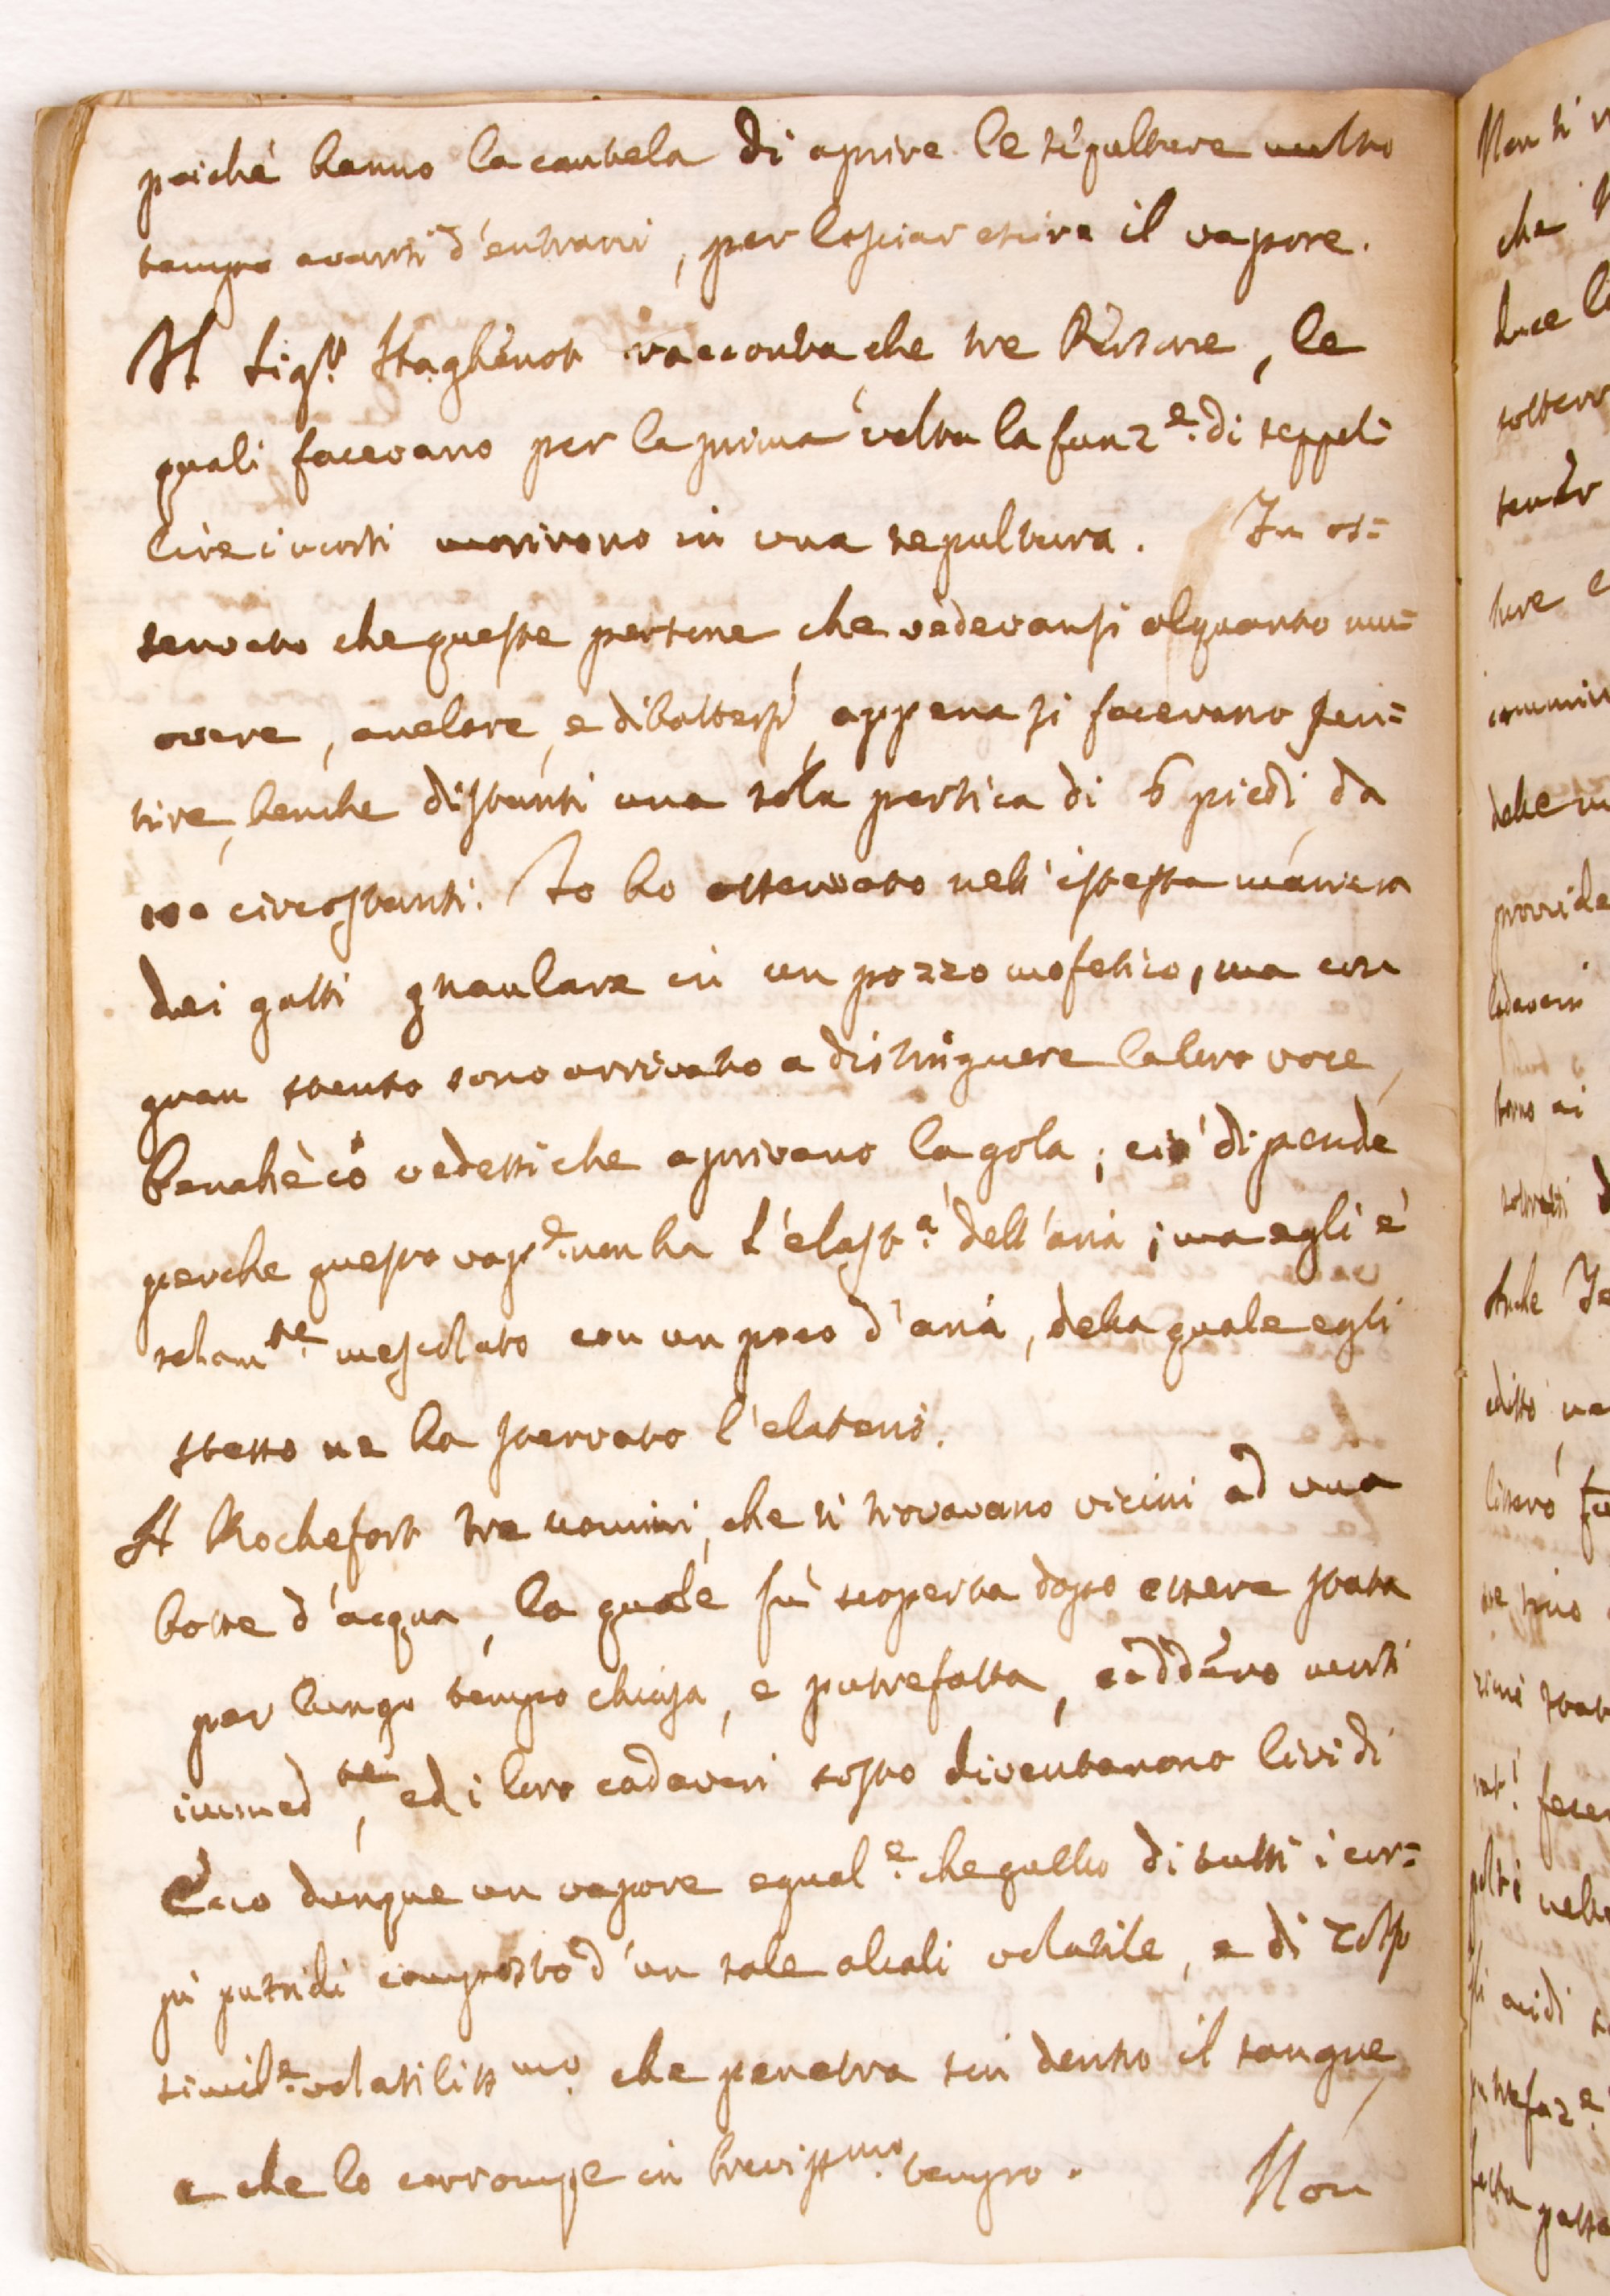 poichè hanno la cautela di aprire le sepulture molto
tempo avanti d'entrarvi, per lasciar escire il vapore.
Il Sig.r Haghenot racconta che tre Persone, le
quali facevano per la prima volta la funz.e di seppel=
lire i morti morirono in una sepultura. Fu os=
servato che queste persone che vedevansi alquanto mu=
overe, anelare, e dibattersi, appena si facevano sen=
tire, benche distanti una sola pertica di 6 piedi, da
circostanti. Io ho osservato nell'istessa maniera
dei gatti gnaulare in un pozzo mofetico, ma con
gran stento sono arrivato a distinguere la loro voce,
benchè io vedessi che aprivano la gola; ciò dipende
perche questo vap.e non ha l'elast.a dell'aria; ma egli è
solam.te mescolato con un poco d'aria, della quale egli
stesso ne ha snervato l'elaterio.
A Rochefort tre uomini, che si trovavano vicini ad una
botte d'acqua, la quale fù scoperta dopo essere stata
per lungo tempo chiusa, e putrefatta, caddero morti
immed.te, ed i loro cadaveri tosto diventarono lividi
Ecco dunque un vapore egual.e che quello di tutti i cor=
pi putridi composto d'un sale alcali volatile, e di zolfo
simil.e volatiliss.mo che penetra sin dentro il sangue,
e che lo corrompe in breviss.mo tempo.
Non